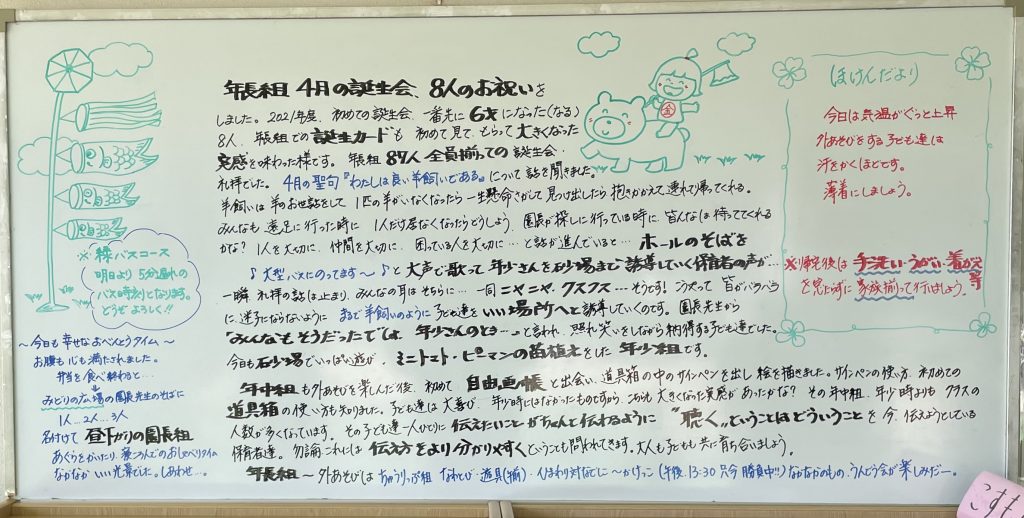 年長組 4月の誕生会、8人のお祝いを
しました。2021年度、初めての誕生会、一番先に6才になった(なる)
8人、年長組での誕生カードも初めて見て、もらって大きくなった
実感を味わった様です。年長組87人全員揃っての誕生会・
礼拝でした。4月の聖句『わたしは良い羊飼いである』について話を聞きました。
羊飼いは羊のお世話をして1匹の羊がいなくなったら一生懸命さがして見つけ出したら抱きかかえ、連れて帰ってくれる。
みんなも遠足に行った時に1人だけ居なくなったらどうしよう、園長が探しに行っている時に、皆んなは待っててくれる
かな? 1人を大切に、仲間を大切に、困っている人を大切に…と話が進んでいると…ホールのそばを
♪大型バスにのってます〜♪と大声で歌って年少さんを砂場まで誘導していく保育者の声が…
一瞬、礼拝の話は止まり、みんなの耳はそちらに…一同ニヤニヤ、クスクス…そうです! こうやって皆がバラバラ
に、迷子にならないようにまるで羊飼いのように子ども達をいい場所へと誘導していくのです。園長先生から
「みんなもそうだった」では、年少さんのとき…と言われ、照れ笑いをしながら納得する子ども達でした。
今日も砂場でいっぱい遊び、ミニトマト・ピーマンの苗植えをした年少組です。
年中組も外あそびを楽しんだ後、初めて自由画帳と出会い、道具箱の中のサインペンを出し絵を描きました。サインペンの使い方、初めての
道具箱の使い方も知りました。子ども達は大喜び、年少時にはなかったものですから、これも大きくなった実感があったかな? その年中組、年少時よりもクラスの
人数が多くなっています。その子ども達一人ひとりに伝えたいことがちゃんと伝わるように"聴く"ということはどういうことを今、伝えようとしている
保育者達。勿論、これには伝え方をより分かりやすくということも問われてきます。大人も子どもも共に育ち合いましょう。
年長組〜外あそびはちゅうりっぷ組 なわとび・遊具(箱)・ひまわり対なでしこ〜かけっこ(午後、13:30 只今勝負中!!)なかなかのもの、うんどう会が楽しみだー。
※緑バスコース
明日より5分遅れの
バス時刻となります。
どうぞよろしく!!
〜今日も幸せなおべんとうタイム〜
お腹も心も満たされました。
弁当を食べ終わると…
みどりの広場の園長先生のそばに
1人…2人…3人
名付けて昼下がりの園長組
あぐらをかいたり、寝ころんでのおしゃべりタイム
なかなかいい光景でした。しあわせ…。
金
ほけんだより
今日は気温がぐっと上昇
外あそびをする子ども達は
汗をかくほどです。
薄着にしましょう。
※帰宅後は手洗い・うがい・着がえ等
を忘れずに家族揃って行いましょう。
こすも